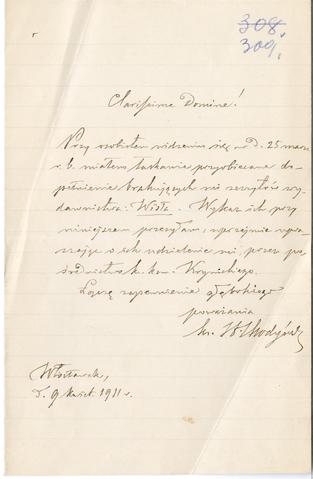 308.
309.
Clarissime Domine!
Przy osobistem widzeniu się w d. 25 marca
r. b. miałem łaskawie przyobiecane do-
pełnienie brakujących mi zeszytów wy-
dawnictwa: Wisła. Wykaz ich przy
niniejszem przesyłam, uprzejmie upra-
szając o ich udzielenie mi, przez po-
średnictwo k. kan. Krynickiego.
Łączę zapewnienie głębokiego
poważania
ks. Chodyński
Włocławek,
d. 9 kwiet. 1911 r.